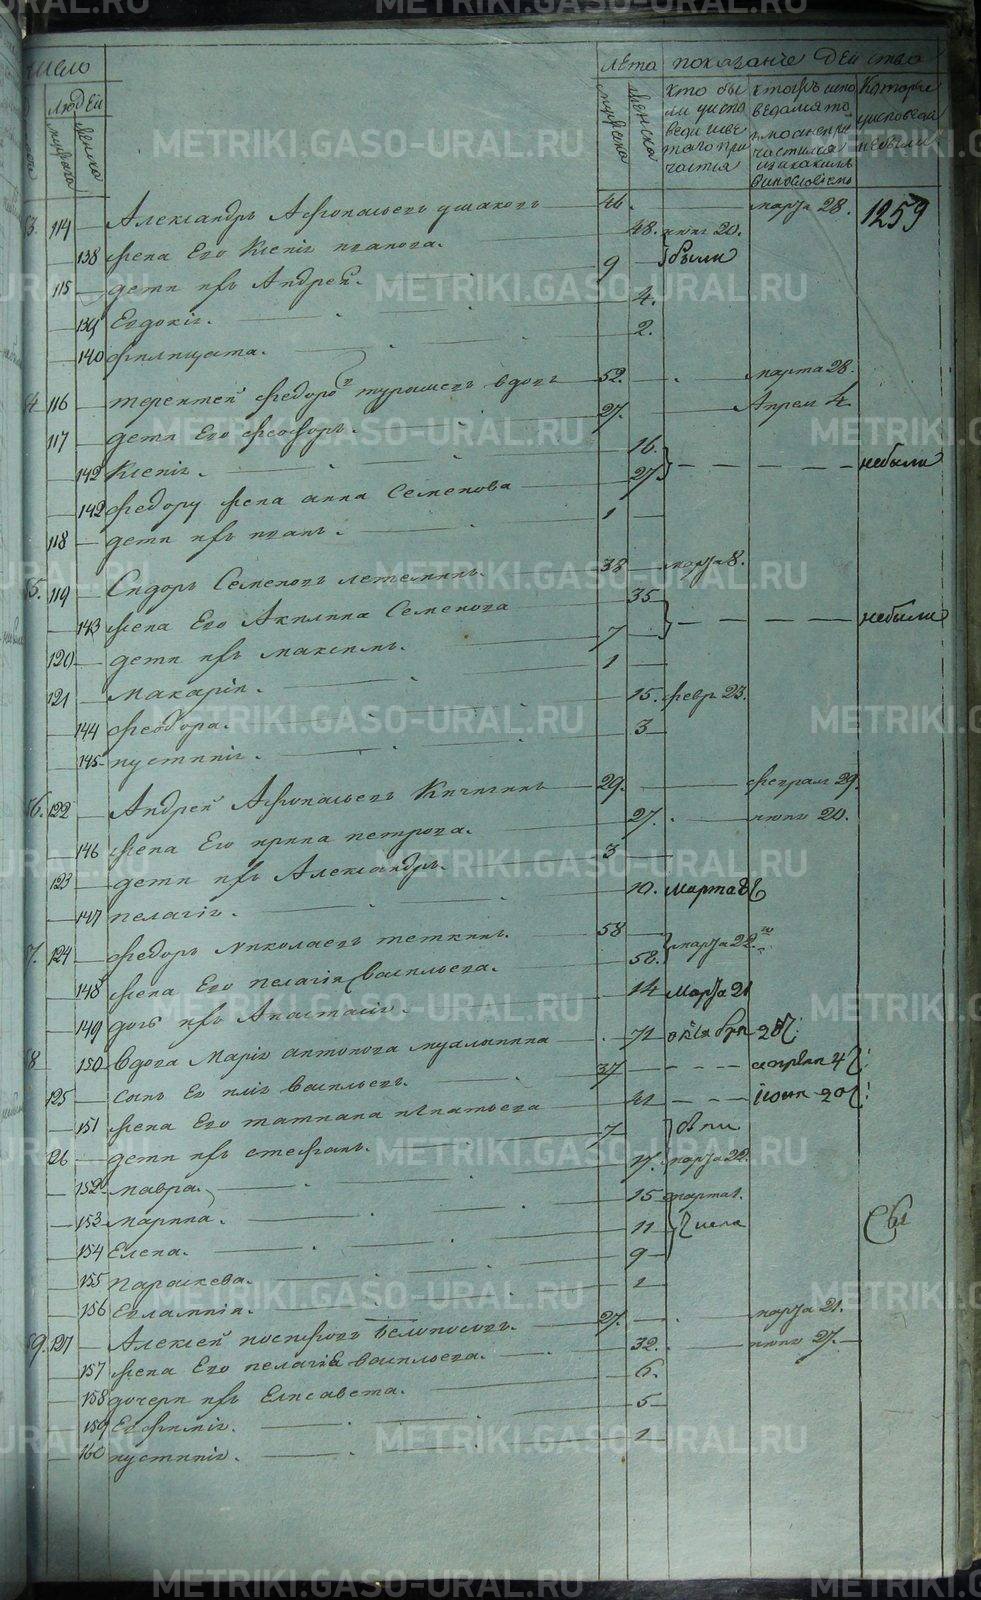 число лета показание действа
людей
мужеска женска мужеска женска
кто бы ли у испо веди и свя таго при частия
которы испо ведалися то кмо а не при частился и за каким винословiемъ
Которые у исповеди не были
1259
3. 114 Александръ Афонасьевъ ушаковъ 46. марта 28.
138 жена Его Ксенiя иванова. 48. июня 20.
115 дети ихъ Андрей. 9 были
139 Евдокiя. 4.
140 филицата. 2.
4 116 терентей федоровъ турышевъ вдовъ 52. марта 28.
117 дети Его феофоръ. 27. Апрел 4
142 Ксенiя. 16.
142 федору жена анна Семенова 27 небыли
118 дети ихъ иванъ. 1
5. 119 Сидоръ Семеновъ летемины. 38 марта 8.
143 жена Его Акилина Семенова 35
120 дети ихъ максимъ. 7 небыли
121 макарiи. 1
144 феодора. 15. февр 23.
145 иустинiя. 3
56. 122 Андрей Афонасьевъ Кичигинъ 29. феврал 29.
146 жена Его ирина петрова. 27. июня 20.
123 дети ихъ Александръ. 3
147 пелагiя. 10. марта 8
7. 124 федоръ Николаевъ теткинъ. 58
148 жена Его пелагiя Васильева. 58. марта 22.
149 дочь ихъ Анастасiя. 14 марта 21
8 150 Вдова Марiя антонова мухлынина 72 октября 28
125 сынъ Ея илiя васильевъ. 37 апреля 4
151 жена Его татиана игнатьева 41 iюня 20
126 дети ихъ стефанъ. 7 были
152 мавра. 17. марта 22.
153 марина. 15 марта 1.
154 Елена. 11 числа
155 Параскева. 9
156 Евлампiя. 1
59. 127 Алексей иосифовъ Белоносовъ. 27. марта 21.
157 жена Его пелагiя васильева. 32. июня 27.
158 дочери ихъ Елисавета. 6.
159 Евфимiя. 5
160 иустинiя. 1
METRIKI.GASO-URAL.RU